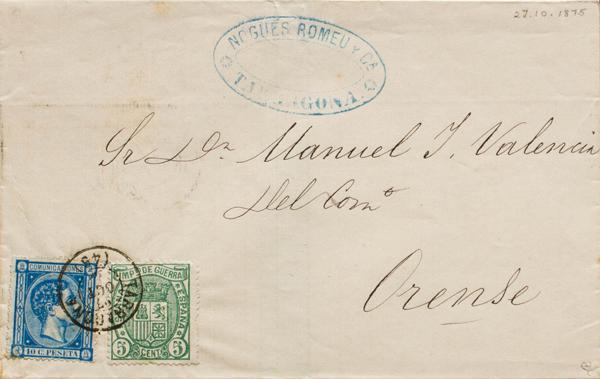 27.10.1875
NOGUÉS ROMEU Y CA
TARRAGONA
Sr Dn Manuel J. Valencia
Del Como
Orense
COMUNICACIONES
10 C. PESETA
TARRAGONA
(43)
IMPTO DE GUERRA
ESPAÑA
5 CENT. 5